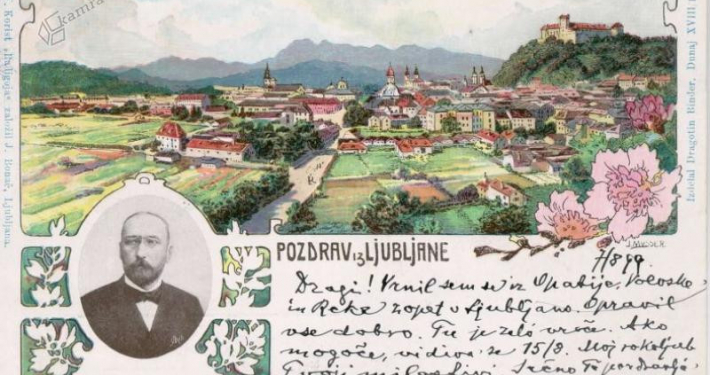 kamra
Korist „Družbe" založil J. Bonač, Ljubljana.
Izdelal Dragotin Binder, Dunaj XVIII
POZDRAV IZ LJUBLJANE
7/8 99.
Dragi! Vrnil sem se iz Opatije, Voloske
in Reke zopet v Ljubljano. Opravil
vse dobro. Tu je zelo vroče. Ako
mogoče, vidiva se 15/8. Moj rokoljub
Tvoji milostivi. Srčno Te pozdravlja